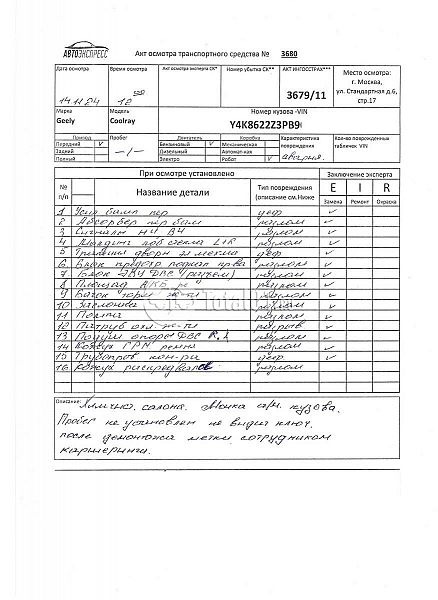 АВТОЭКСПРЕСС
Акт осмотра транспортного средства № 3680
Дата осмотра
Время осмотра
Акт осмотра эксперта СК*
Номер убытка СК**
АКТ ИНГОССТРАХ***
Место осмотра:
г. Москва,
ул. Стандартная д.6,
стр.17
14.11.24
12 00
3679/11
Марка
Geely
Модель
Coolray
Номер кузова -VIN
Y4K8622Z3PB9
Привод
Передний V
Задний
Полный
Пробег
-/-
Двигатель
Бензиновый V
Дизельный
Электро
Коробка
Механическая
Автоматическая
Робот V
Характеристика повреждения
авария.
Кол-во поврежденных табличек VIN
При осмотре установлено
Заключение эксперта
№ п/п
Название детали
Тип повреждения (описание см.Ниже
E I R
Замена Ремонт Окраска
1 Усил бампера пер деф ✓
2 Абсорбер пер бамп разлом ✓
3 Сигналы НЧ ВЧ разлом ✓
4 Молдинг лоб стекла L+R разлом ✓
5 деф ✓
6 Блок разлом ✓
7 Блок ЭБУ ДВС (разъем) разлом ✓
8 Площад АКБ разлом ✓
9 Бачок торм ж-ти разлом ✓
10 Заслонка разлом ✓
11 Помпа разлом ✓
12 Патруб охл ж-ти разрыв ✓
13 опоры ДВС R, L разлом ✓
14 Кожух ГРМ ремня разлом ✓
15 Трубопров кон-ра деф ✓
16 Кожух распредвалов разлом ✓
TotalBid
Описание: Химчис. салона. Мойка а/м. кузова.
Пробег не установлен не выдан ключ.
после демонтажа метки сотрудником
каршеринга.